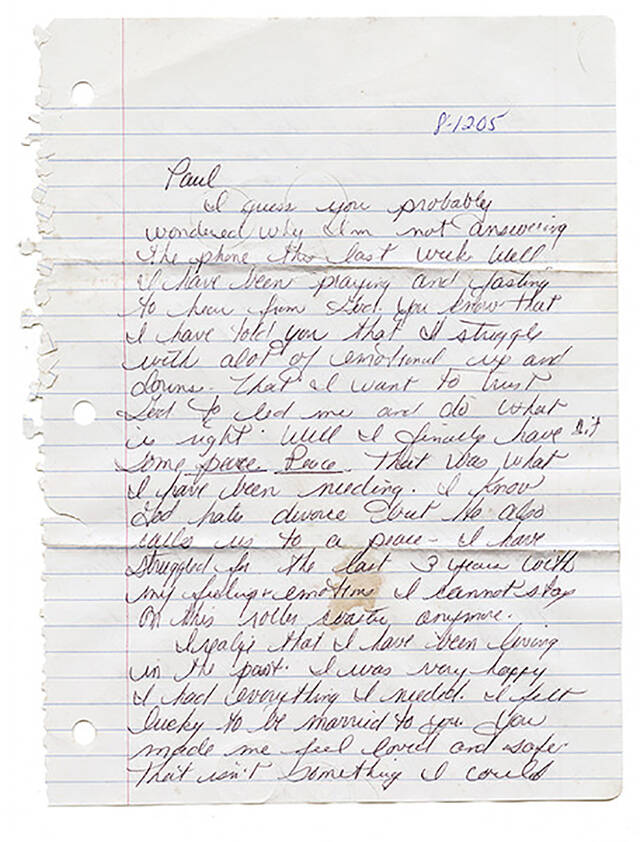 8-1205
Paul
I guess you probably
wondered why I'm not answering
the phone this last week Well
I have been praying and fasting
to hear from God. You know that
I have told you that I struggle
with alot of emotional up and
downs. That I want to trust
God to led me and do what
is right. Well I finally have
some peace Peace. That was what
I have been needing. I know
God hate divorce but he also
calls us to a peace - I have
struggled for the last 3 years with
my feeling + emotions I cannot stay
on this roller coaster anymore.
I realize that I have been living
in the past. I was very happy
I had everything I needed. I felt
lucky to be married to you. You
made me feel loved and safe.
That isn't something I could